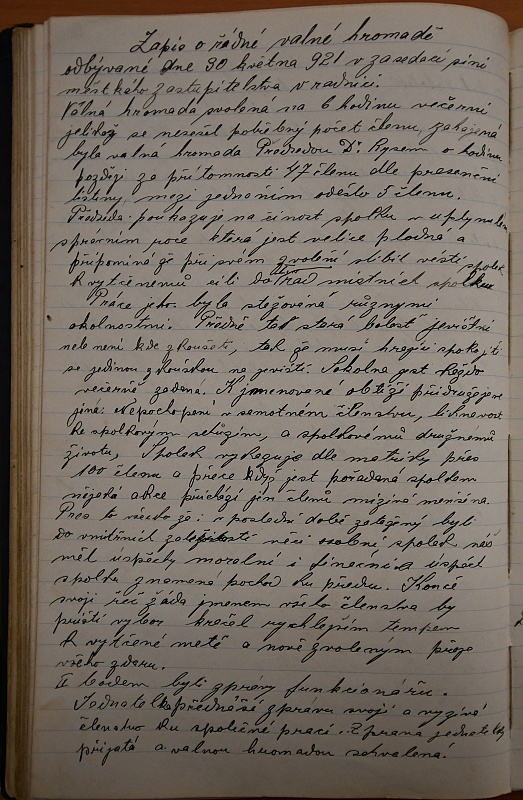 Zapis o řádné valné hromadě
odbývané dne 30 května 921 v zasedací síni
městkého zastupitelstva v radnici.
Válná hromada svolená na 6 hodinu večerní
jelikož se nesešel potřebný počet členu, zahájená
byla valná hromada Předsedou Dr. Rysem o hodinu
pozděgi za přítomnosti 47 členu dle presenční
listiny, mezi jednáním odešlo 5 členu.
Předseda poukazuje na činost spolku v uplynulém
správním roce která jest velice plodná a
připomíná že při svém zvolení slíbil vésti spolek
k vytčenému cíli do řad místních spolku
Práce jeho byla stěžována různymi
okolnostmi. Předně tak stará bolest jevištní
není kde zkoušeti, tak že musí hrající spokojiti
se jedinou zkouškou na jevišti. Sokolna jest každo
večerně zadaná. K jmenované obtíži přidružuje
jiná. Nepochopení v samotném členstvu, lichnavost
ke spolkovým schůzím, a spolkovému družnému
životu, Spolek vykazuje dle matriky přes
100 členu a přece když jest pořádaná spolkem
nějaká akce přichází jen členů mizivá menšina.
Přes to všecko že v poslední době zatažený byli
do vnitřních záležitostí věci osobní spolek náš
měl úspěchy moralní i finanční a úspěch
spolku znamená pochod ku předu. Končě
svoji řeč žáda jmenem všeho členstva by
příští vybor kráčel rychlejším tempem
k vytčené metě a nově zvoleným přeje
všeho zdaru.
II bodem byli zprávy funkcionářu.
Jednatelka přednáší zpravu svoji a vyzívá
členstvo ku společné práci. Zprava jednatelky
přijatá a valnou hromadou schvalená.